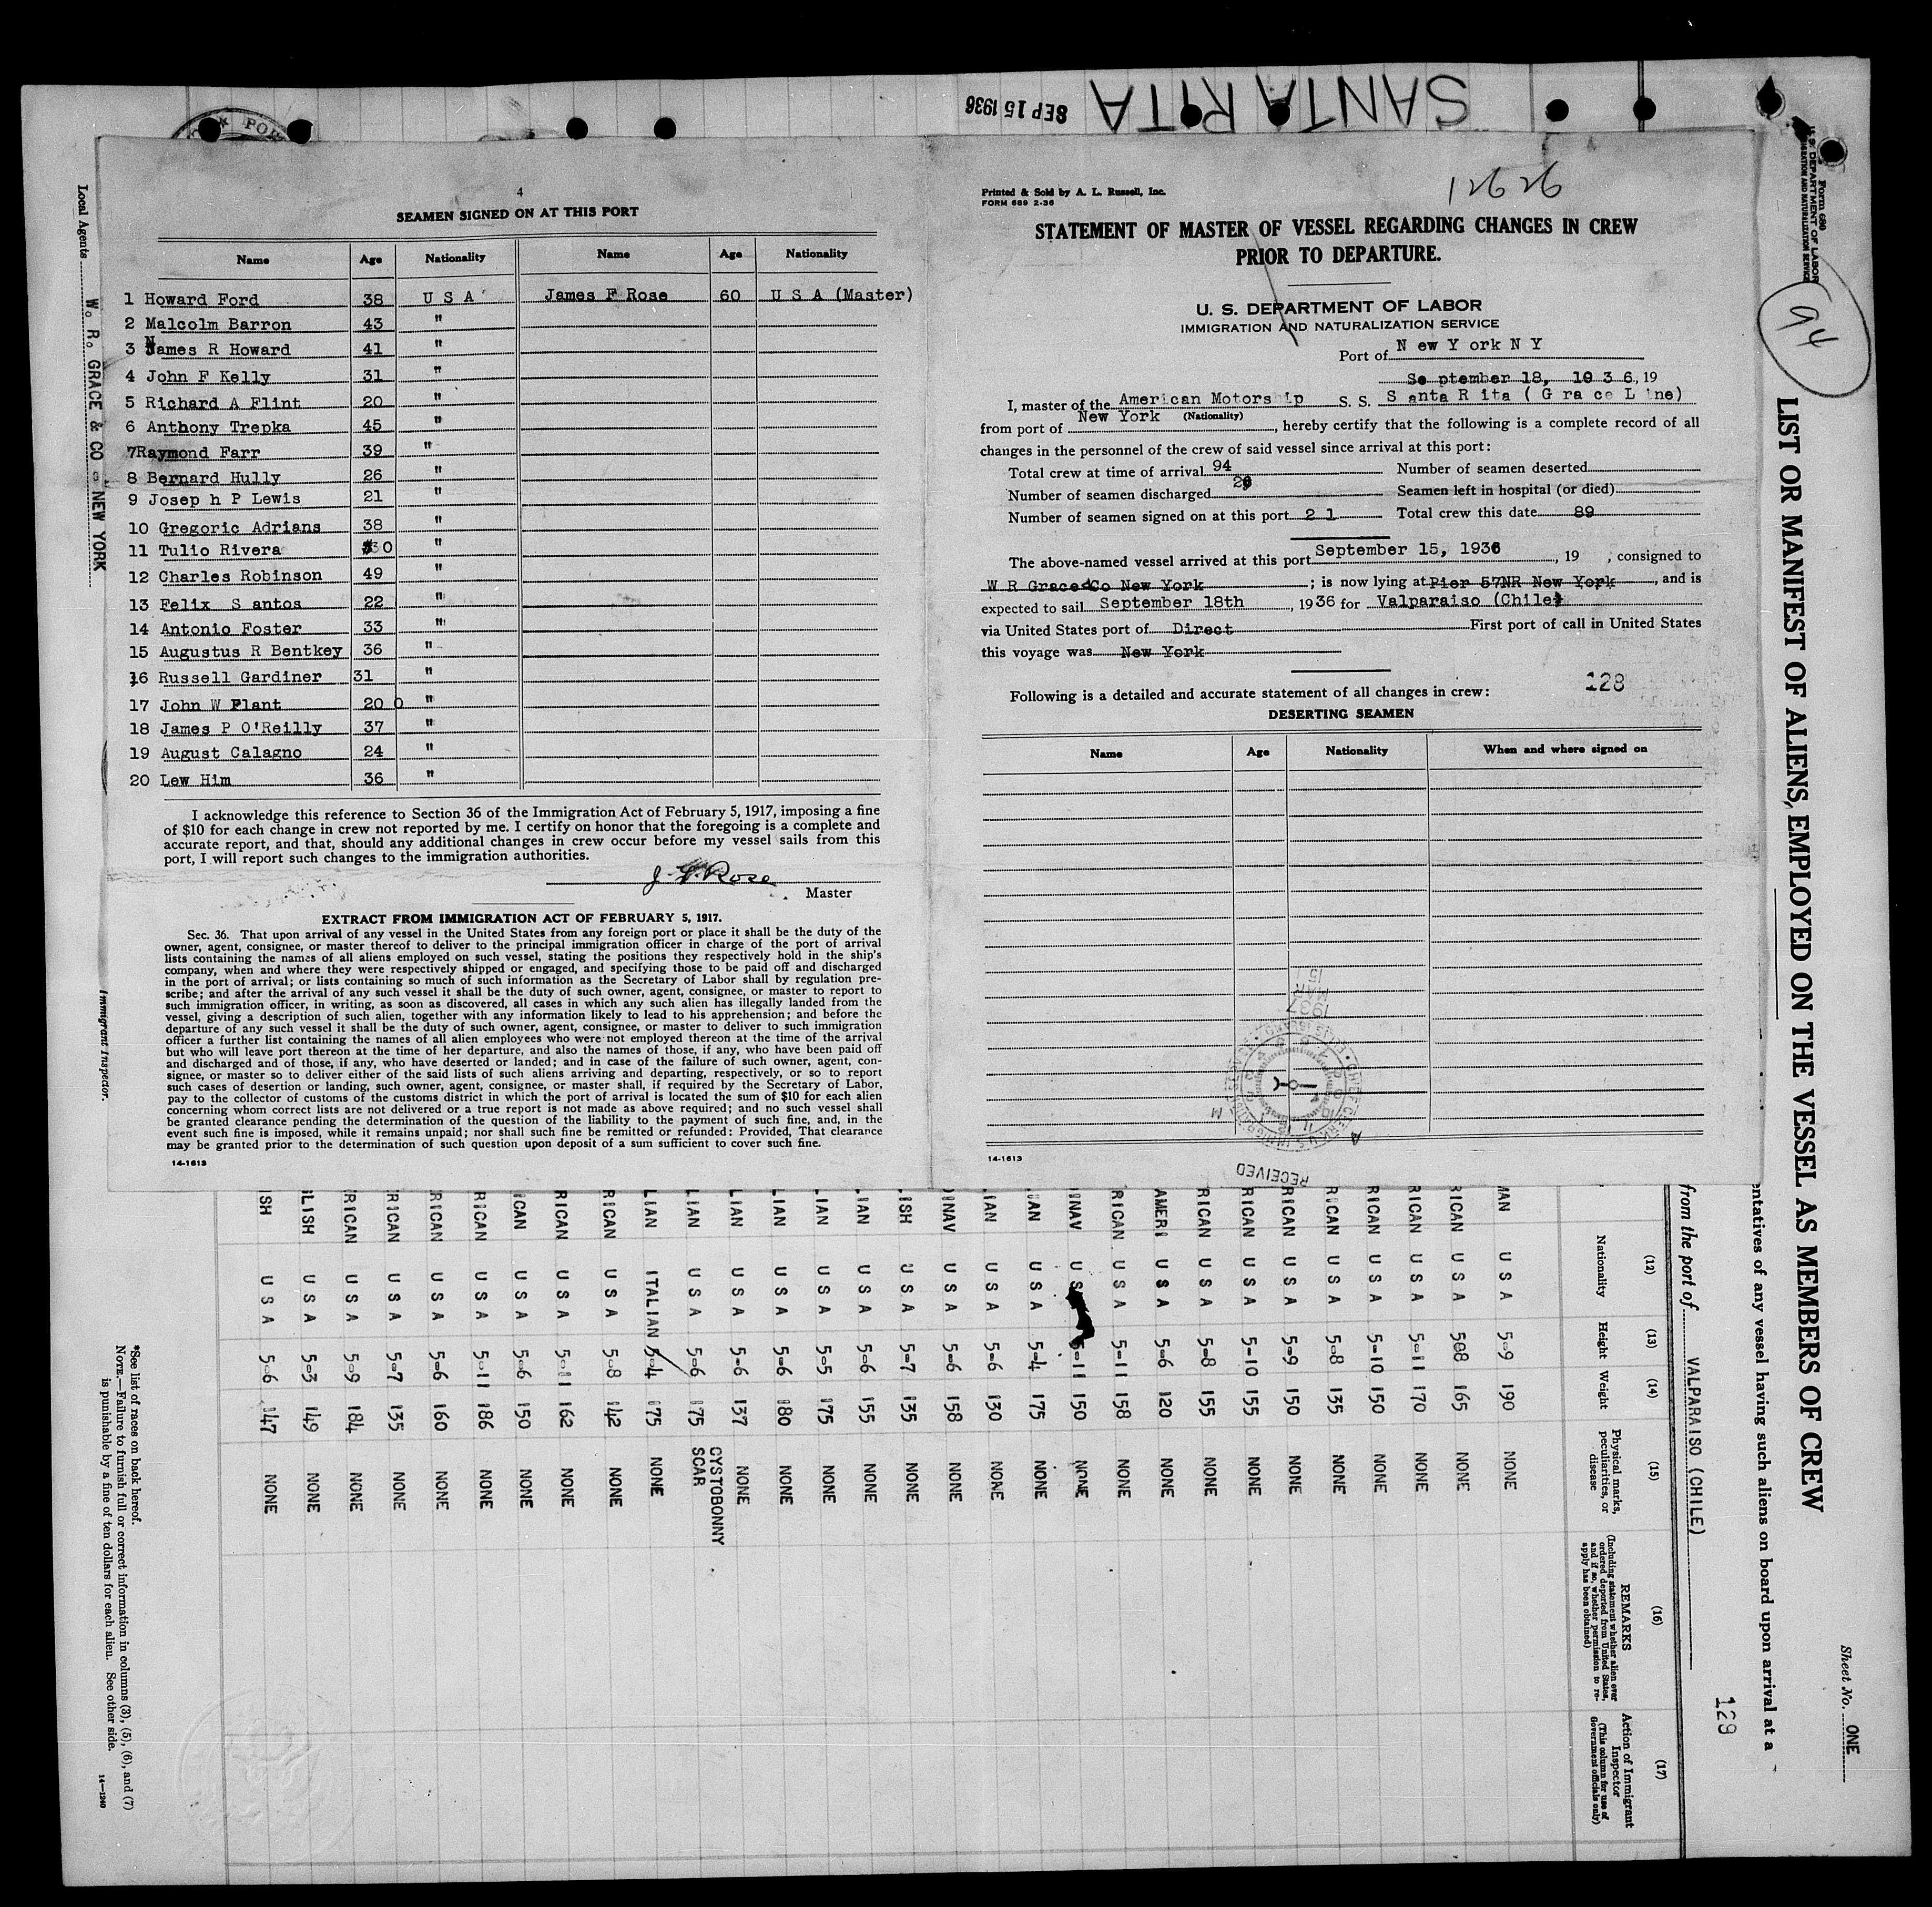 SANTA RITA
SEP 15 1936
4
SEAMEN SIGNED ON AT THIS PORT
Name Age Nationality Name Age Nationality
1 Howard Ford 38 U S A James F Rose 60 U S A (Master)
2 Malcolm Barron 43 "
3 James R Howard 41 "
4 John F Kelly 31 "
5 Richard A Flint 20 "
6 Anthony Trepka 45 "
7Raymond Farr 39 "
8 Bernard Hully 26 "
9 Josep h P Lewis 21 "
10 Gregoric Adrians 38 "
11 Tulio Rivera 30 "
12 Charles Robinson 49 "
13 Felix S antos 22 "
14 Antonio Foster 33 "
15 Augustus R Bentkey 36 "
16 Russell Gardiner 31 "
17 John W Plant 20 0 "
18 James P O'Reilly 37 "
19 August Calagno 24 "
20 Lew Him 36 "
I acknowledge this reference to Section 36 of the Immigration Act of February 5, 1917, imposing a fine
of $10 for each change in crew not reported by me. I certify on honor that the foregoing is a complete and
accurate report, and that, should any additional changes in crew occur before my vessel sails from this
port, I will report such changes to the immigration authorities.
J. F. Rose
Master
EXTRACT FROM IMMIGRATION ACT OF FEBRUARY 5, 1917.
Sec. 36. That upon arrival of any vessel in the United States from any foreign port or place it shall be the duty of the
owner, agent, consignee, or master thereof to deliver to the principal immigration officer in charge of the port of arrival
lists containing the names of all aliens employed on such vessel, stating the positions they respectively hold in the ship's
company, when and where they were respectively shipped or engaged, and specifying those to be paid off and discharged
in the port of arrival; or lists containing so much of such information as the Secretary of Labor shall by regulation pre-
scribe; and after the arrival of any such vessel it shall be the duty of such owner, agent, consignee, or master to report to
such immigration officer, in writing, as soon as discovered, all cases in which any such alien has illegally landed from the
vessel, giving a description of such alien, together with any information likely to lead to his apprehension; and before the
departure of any such vessel it shall be the duty of such owner, agent, consignee, or master to deliver to such immigration
officer a further list containing the names of all alien employees who were not employed thereon at the time of the arrival
but who will leave port thereon at the time of her departure, and also the names of those, if any, who have been paid off
and discharged and of those, if any, who have deserted or landed; and in case of the failure of such owner, agent, con-
signee, or master so to deliver either of the said lists of such aliens arriving and departing, respectively, or so to report
such cases of desertion or landing, such owner, agent, consignee, or master shall, if required by the Secretary of Labor,
pay to the collector of customs of the customs district in which the port of arrival is located the sum of $10 for each alien
concerning whom correct lists are not delivered or a true report is not made as above required; and no such vessel shall
be granted clearance pending the determination of the question of the liability to the payment of such fine, and, in the
event such fine is imposed, while it remains unpaid; nor shall such fine be remitted or refunded: Provided, That clearance
may be granted prior to the determination of such question upon deposit of a sum sufficient to cover such fine.
14-1613
Printed & Sold by A. L. Russell, Inc.
FORM 689 2-36
12626
STATEMENT OF MASTER OF VESSEL REGARDING CHANGES IN CREW
PRIOR TO DEPARTURE.
U. S. DEPARTMENT OF LABOR
IMMIGRATION AND NATURALIZATION SERVICE
Port of N ew Y ork N Y
Se ptember 18, 19 3 6, 19
I, master of the American Motorship S. S. S anta R ita ( G ra ce L ine)
(Nationality)
from port of New York, hereby certify that the following is a complete record of all
changes in the personnel of the crew of said vessel since arrival at this port:
Total crew at time of arrival 94 Number of seamen deserted
Number of seamen discharged Seamen left in hospital (or died)
Number of seamen signed on at this port 2 1 Total crew this date 89
The above-named vessel arrived at this port September 15, 1936, 19 , consigned to
W R Grace&Co New York ; is now lying at Pier 57NR New York, and is
expected to sail September 18th, 1936 for Valparaiso (Chile)
via United States port of Direct First port of call in United States
this voyage was New York
Following is a detailed and accurate statement of all changes in crew: 128
DESERTING SEAMEN
Name Age Nationality When and where signed on
1937
MAR
15
RECEIVED
14-1613
Local Agents W. R. GRACE & CO - NEW YORK
Immigrant Inspector.
Form 680
U. S. DEPARTMENT OF LABOR
IMMIGRATION AND NATURALIZATION SERVICE
94
Sheet No. ONE
LIST OR MANIFEST OF ALIENS, EMPLOYED ON THE VESSEL AS MEMBERS OF CREW
entatives of any vessel having such aliens on board upon arrival at a
129
from the port of VALPARAISO (CHILE)
(12) (13) (14) (15) (16) (17)
Nationality Height Weight Physical marks, peculiarities, or disease REMARKS (Including statement whether alien ever ordered deported from United States, and if so, whether permission to re-apply has been obtained) Action of Immigrant Inspector (This column for use of Government officials only)
MAN U S A 5-9 190 NONE
RICAN U S A 508 165 NONE
RICAN U S A 5-11 170 NONE
RICAN U S A 5-10 150 NONE
RICAN U S A 5-8 135 NONE
RICAN U S A 5-9 150 NONE
RICAN U S A 5-10 155 NONE
RICAN U S A 5-8 155 NONE
AMERI U S A 5-6 120 NONE
RICAN U S A 5-11 158 NONE
INAV U S 5-11 150 NONE
IAN U S A 5-4 175 NONE
IAN U S A 5-6 130 NONE
INAV U S A 5-6 158 NONE
ISH U S A 5-7 135 NONE
IAN U S A 5-6 155 NONE
IAN U S A 5-5 175 NONE
LIAN U S A 5-6 180 NONE
LIAN U S A 5-6 137 NONE
LIAN U S A 5-6 175 CYSTOBONNY SCAR
LIAN ITALIAN 5-4 175 NONE
RICAN U S A 5-8 142 NONE
RICAN U S A 5-11 162 NONE
ICAN U S A 5-6 150 NONE
RICAN U S A 5-11 186 NONE
RICAN U S A 5-6 160 NONE
RICAN U S A 5-7 135 NONE
RICAN U S A 5-9 184 NONE
LISH U S A 5-3 149 NONE
ISH U S A 5-6 147 NONE
*See list of races on back hereof.
NOTE.—Failure to furnish full or correct information in columns (3), (5), (6), and (7)
is punishable by a fine of ten dollars for each alien. See other side.
14-1240